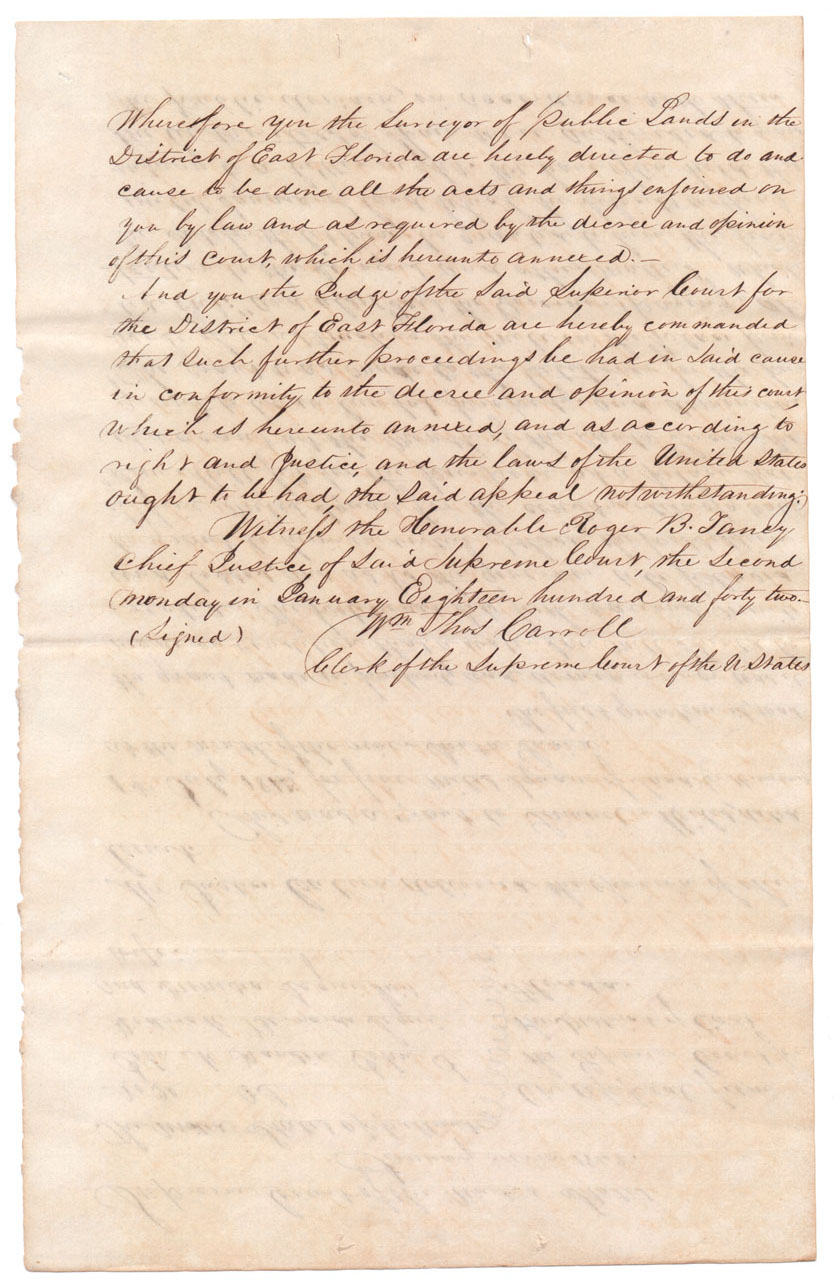 Wherefore you the Surveyor of public Lands in the
District of East Florida are hereby directed to do and
cause to be done all the acts and things enjoined on
you by law and as required by the decree and opinion
of this court, which is hereunto annexed. —
And you the Judge of the Said Superior Court for
the District of East Florida are hereby commanded
that such further proceedings be had in said cause
in conformity to the decree and opinion of this court,
which is hereunto annexed, and as according to
right and Justice, and the laws of the United States
ought to be had, the said appeal notwithstanding:
Witness the Honorable Roger B. Taney
Chief Justice of said Supreme Court, the second
monday in January Eighteen hundred and forty two. —
(Signed) Wm Thos Carroll
Clerk of the Supreme Court of the U States